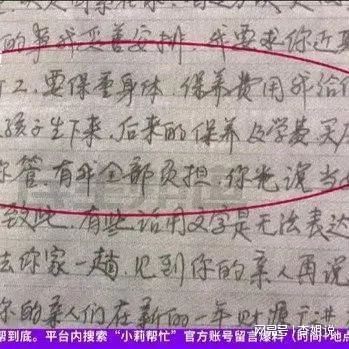 的事我会善安排，我要求你近期
工，要保重身体，保养费用我给你
孩子生下来，后来的保养及学费买房
你管，有我全部负担，你爸说当
致此，有些话用文字是无法表达
去你家一趟，见到你的亲人再说
你的亲人们在新的一年财源广进
帮到底。平台内搜索“小莉帮忙”官方账号留言爆料（时间+地点
搜狐号@李姐说